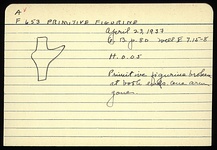 A
F 653 PRIMITIVE FIGURINE
April 29, 1937
B p. 80 well E 7.15-8
H. 0.05
Primitive figurine broken
at both ends. One arm
gone.